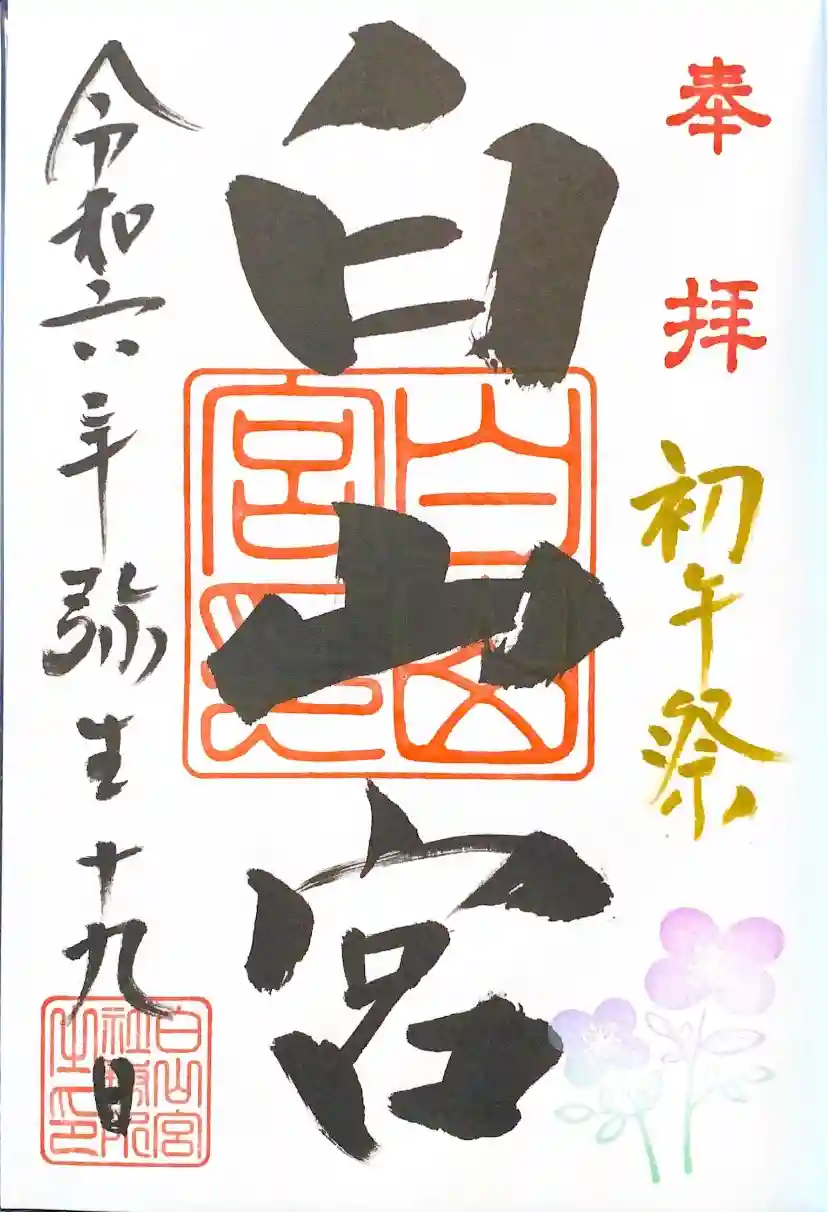 奉拝
初午祭
白山宮
白山宮印
令和六年弥生十九日
白山宮社務所之印